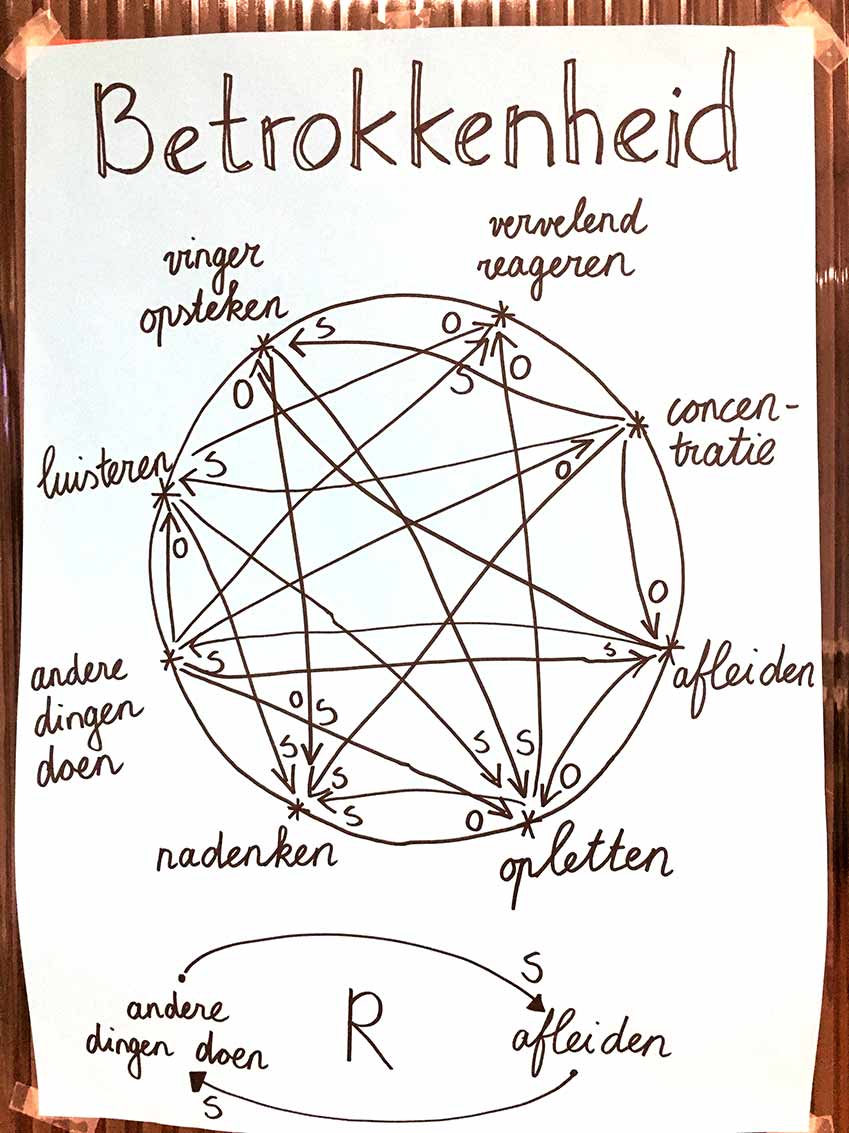 Betrokkenheid
vervelend
reageren
vinger
opsteken
S
O
S
O
O
concen-
tratie
luisteren
S
O
O
O
andere
dingen
doen
S
S
afleiden
O
S
S
S
S
S
S
O
O
nadenken
opletten
S
andere
dingen doen
R
afleiden
S